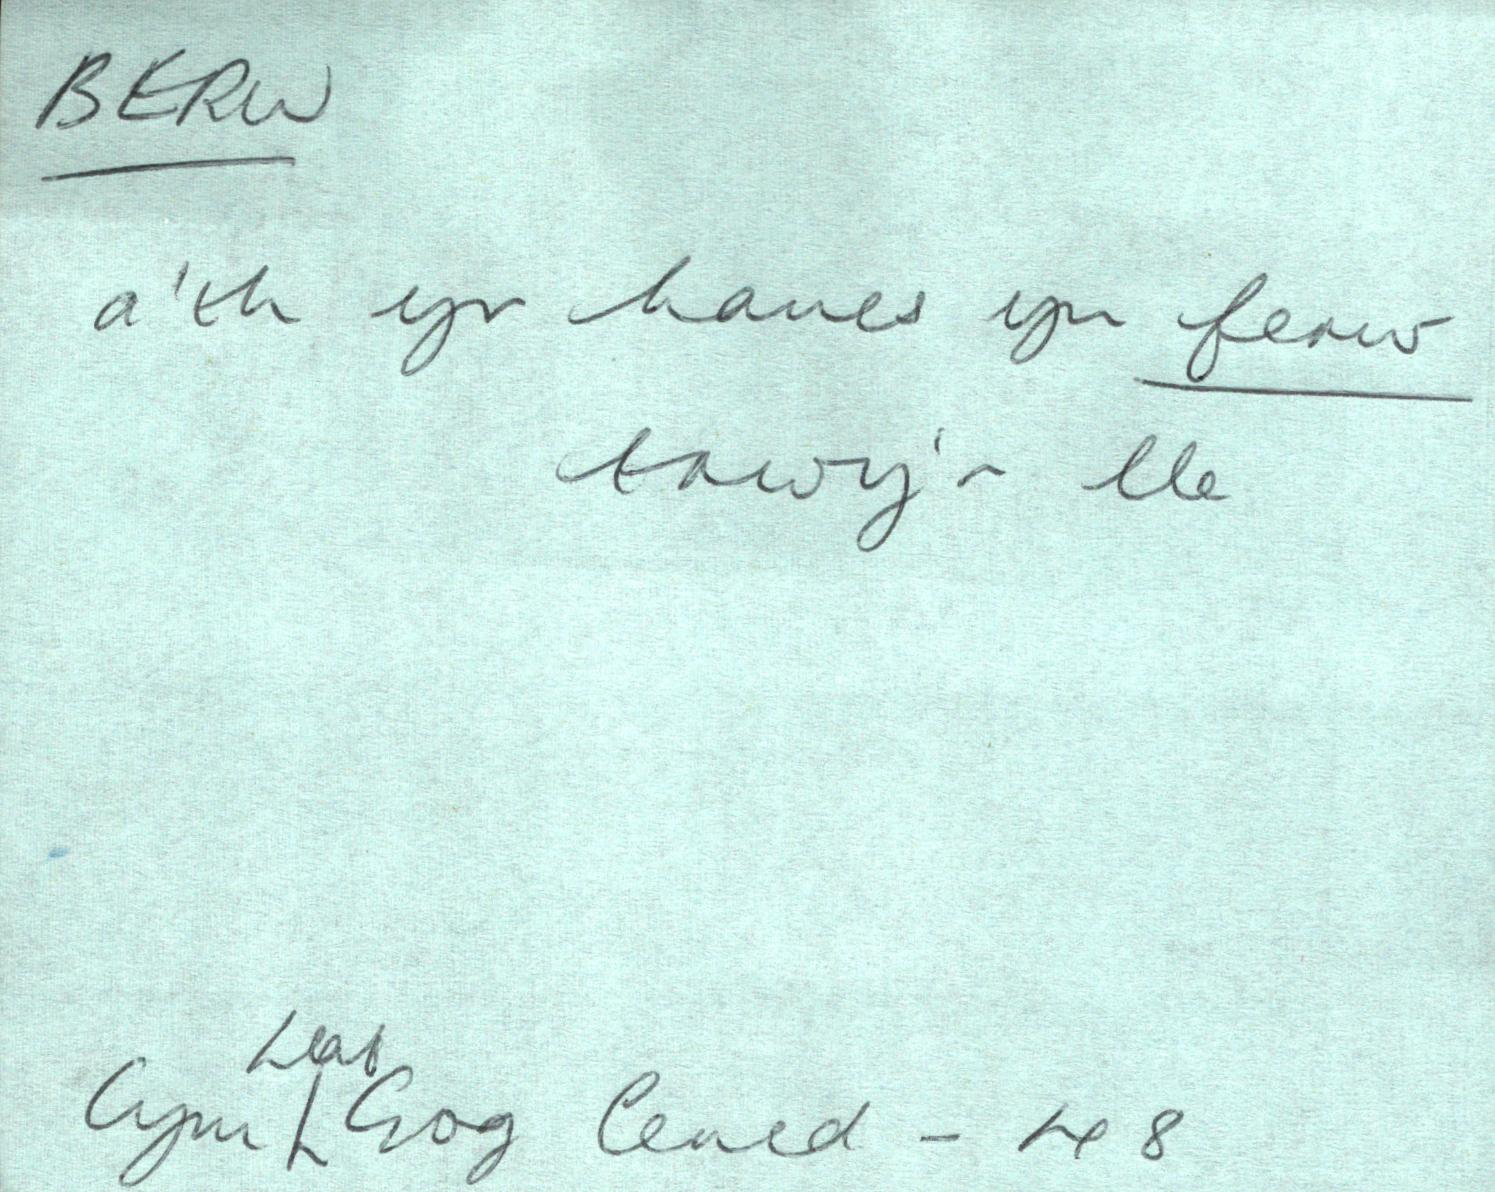 BERW
a'th yr hanes yn ferw
trwy'r lle
Cym Llafar Gog Cered - 48